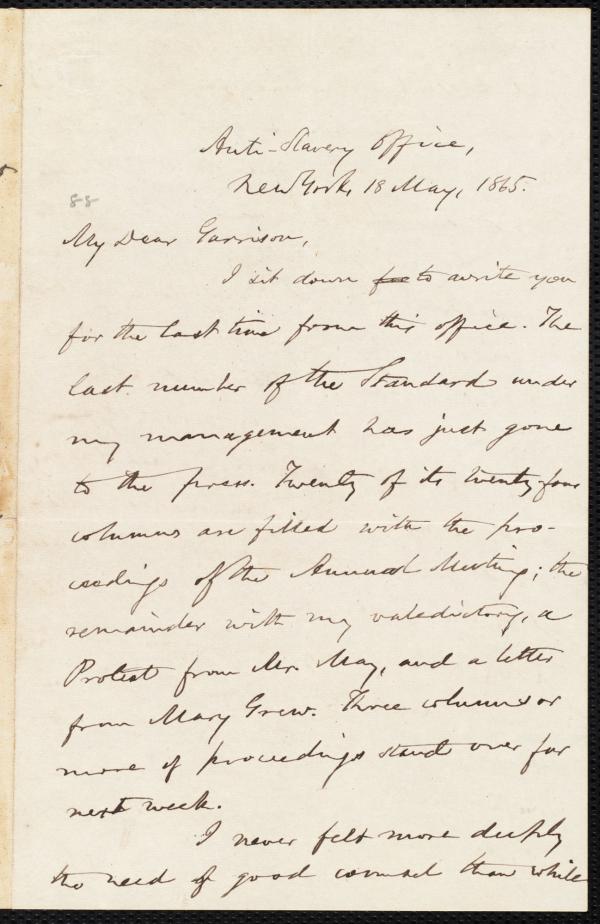 Anti-Slavery Office,
New York, 18 May, 1865.
88
My Dear Garrison,
I sit down for to write you
for the last time from this office. The
last number of the Standard under
my management has just gone
to the press. Twenty of its twenty-four
columns are filled with the pro-
ceedings of the Annual Meeting; the
remainder with my valedictory, a
Protest from Mr. May, and a letter
from Mary Grew. Three columns or
more of proceedings stand over for
next week.
I never felt more deeply
the need of good counsel than while